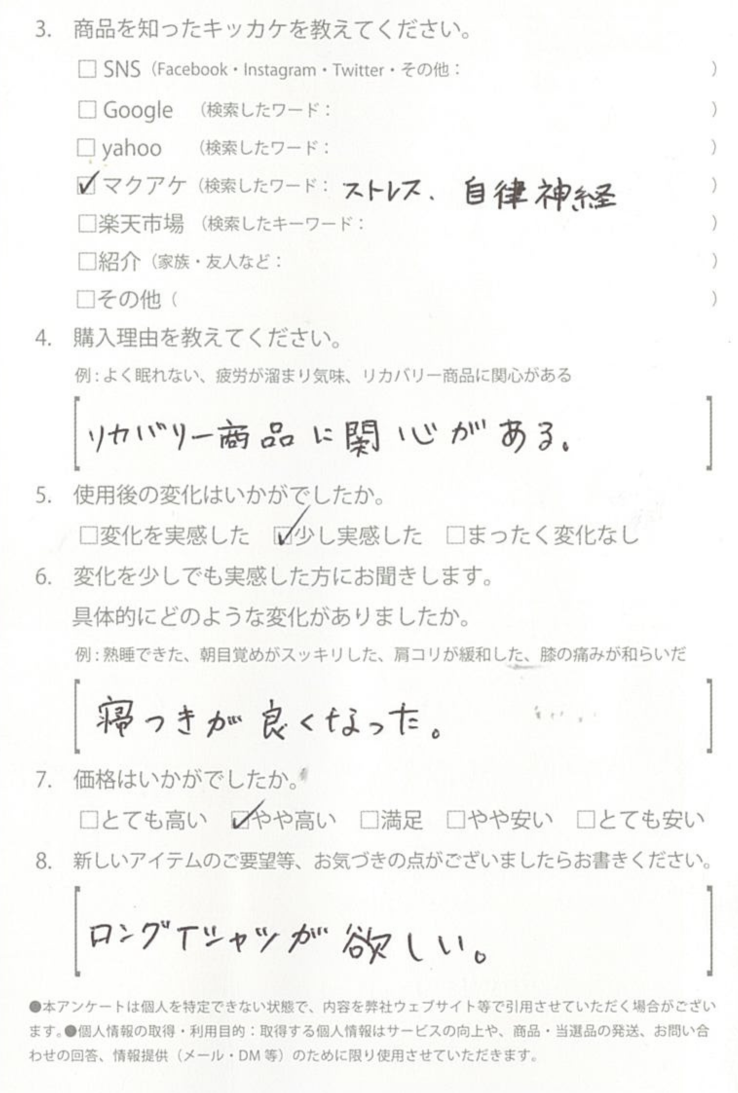 3. 商品を知ったキッカケを教えてください。
□ SNS（Facebook・Instagram・Twitter・その他： ）
□ Google （検索したワード： ）
□ yahoo （検索したワード： ）
☑ マクアケ（検索したワード： ストレス、自律神経 ）
□楽天市場 （検索したキーワード： ）
□紹介（家族・友人など： ）
□その他（ ）
4. 購入理由を教えてください。
例：よく眠れない、疲労が溜まり気味、リカバリー商品に関心がある
リカバリー商品に関心がある。
5. 使用後の変化はいかがでしたか。
□変化を実感した ☑少し実感した □まったく変化なし
6. 変化を少しでも実感した方にお聞きします。
具体的にどのような変化がありましたか。
例：熟睡できた、朝目覚めがスッキリした、肩コリが緩和した、膝の痛みが和らいだ
寝つきが良くなった。
7. 価格はいかがでしたか。
□とても高い ☑やや高い □満足 □やや安い □とても安い
8. 新しいアイテムのご要望等、お気づきの点がございましたらお書きください。
ロングTシャツが欲しい。
●本アンケートは個人を特定できない状態で、内容を弊社ウェブサイト等で引用させていただく場合がござい
ます。●個人情報の取得・利用目的：取得する個人情報はサービスの向上や、商品・当選品の発送、お問い合
わせの回答、情報提供（メール・DM 等）のために限り使用させていただきます。